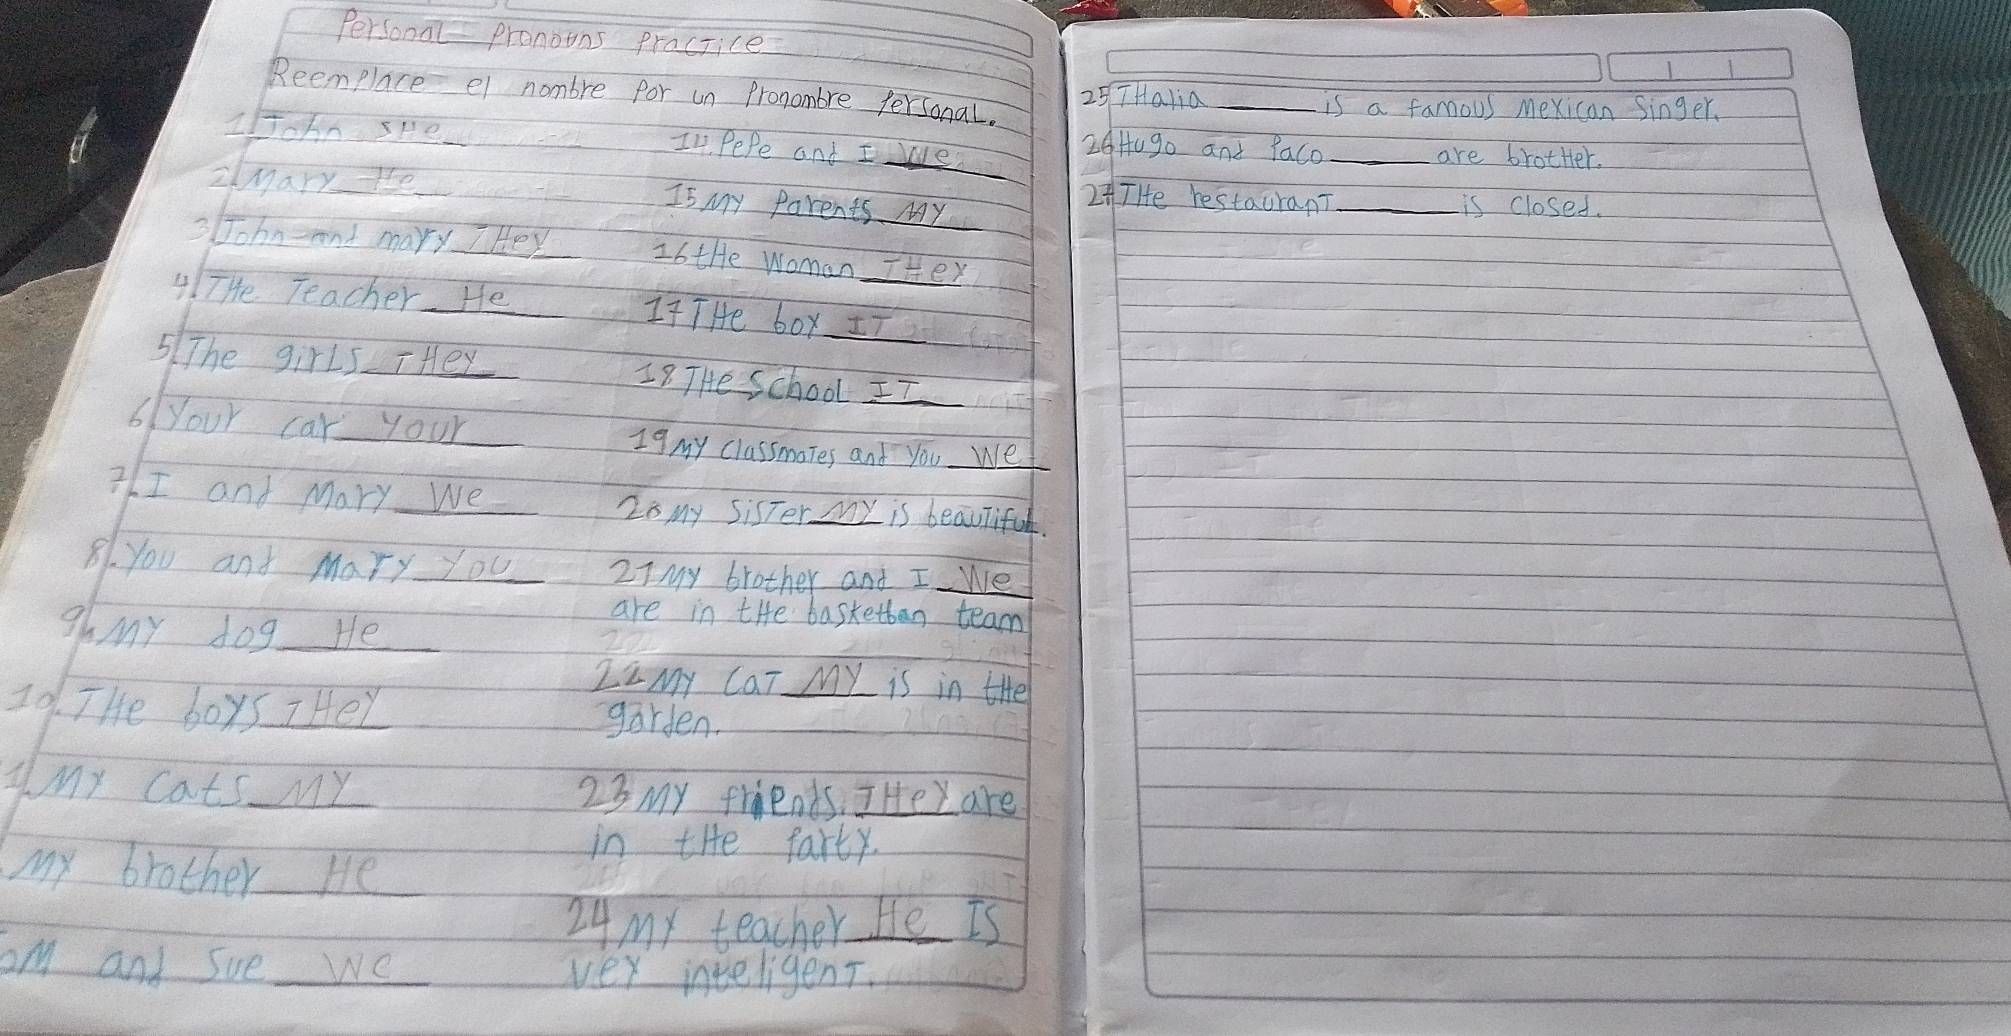 Personal Pronouns Practice
Reemplace el nombre por un Pronombre Personal.
1 John SHe
2 Mary He
3 John and mary THey
4 THe Teacher He
5 The girls THey
6 Your car your
7. I and Mary We
8. You and Mary You
9 My dog He
10. THe boys THey
My cats MY
My brother He
and Sue We
14. Pepe and I We
15 My Parents MY
16 tHe Woman THey
17 THe box IT
18 THe School IT
19 My classmates and you We
20 My Sister MY is beautiful.
21 My brother and I We
are in tHe team
22 My CaT MY is in tHe
garden.
23 My friends. THey are
in tHe Party.
24 My teacher He Is
vey inteligenT.
25 THalia is a famous Mexican Singer.
26 Hugo and Paco are brotHer.
27 THe restauranT is closed.